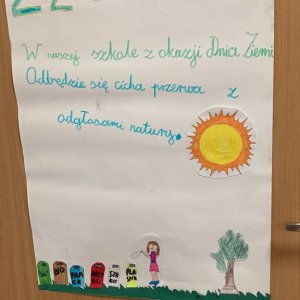 22
W naszej szkole z okazji Dnia Ziemi
Odbędzie się cicha przerwa z
odgłosami natury.
BIO
PAPIER
SZKŁO